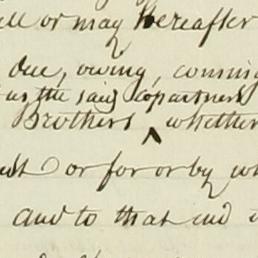 or may hereafter
due, owing,
as the said copartners
Brothers whether
or for or by
and to that end